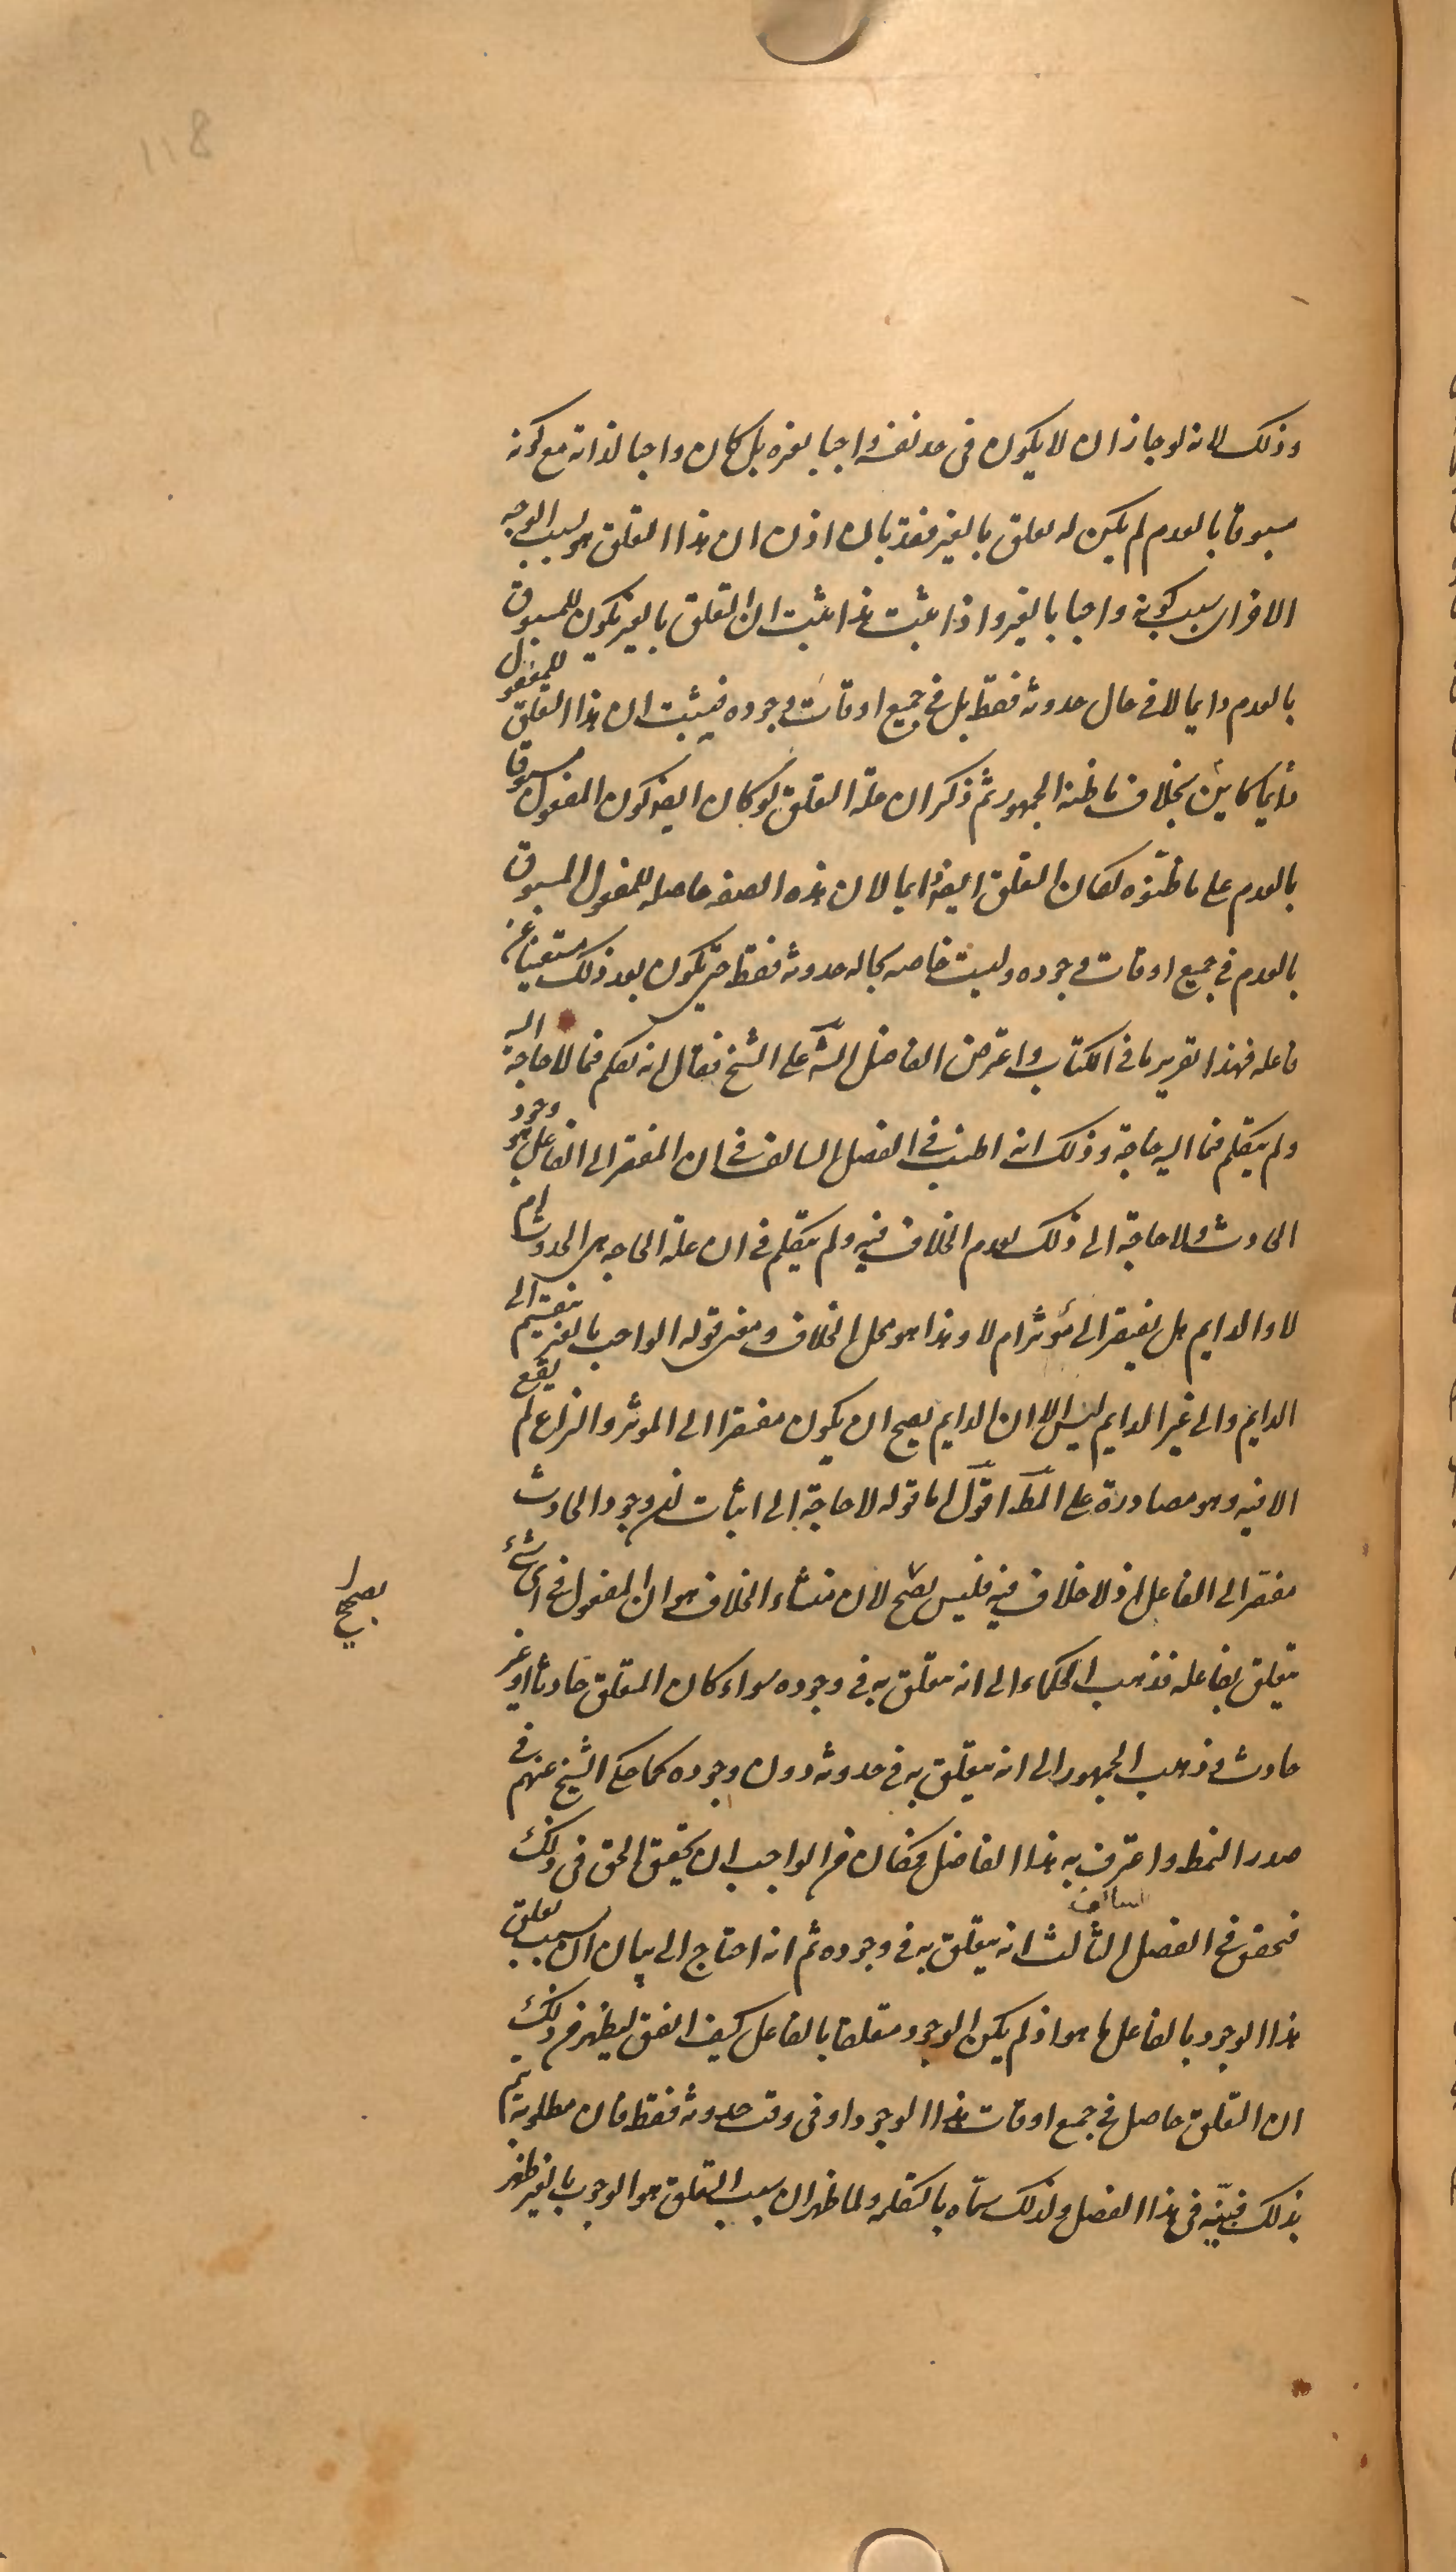 118
وذلک لانه لو جاز ان لا یکون فی حد نفسه واجبا بغیره بل کان واجبا لذاته مع کونه
مسبوقا بالعدم لم یکن له تعلق بالغیر فقد بان اذن ان هذا التعلق هو بسبب الوجه
الاخر ای بسبب کونه واجبا بالغیر واذا ثبت هذا ثبت ان التعلق بالغیر یکون للمسبوق
بالعدم دایما لا فی حال حدوثه فقط بل فی جمیع اوقات وجوده فیثبت ان هذا التعلق للمفعول
دایما کاین بخلاف ما ظنه الجمهور ثم ذکر ان علة التعلق لو کان ایضا کون المفعول مسبوقا
بالعدم علی ما ظنّوه لکان التعلق ایضا دایما لان هذه الصفه حاصله للمفعول المسبوق
بالعدم فی جمیع اوقات وجوده ولیست خاصه بحاله حدوثه فقط حتی یکون بعد ذلک مستغنیا عن
فاعله فهذا تقریر ما فی الکتاب واعترض الفاضل الشه علی الشیخ فقال انه تکلم فما لا حاجة الیه
ولم یتکلم فما الیه حاجة وذلک انه اطنب فی الفصل السالف فی ان المفتقر الی الفاعل هو وجود
الحادث ولا حاجة الی ذلک لعدم الخلاف فیه ولم یتکلم فی ان علة الحاجه هی الحدوث ام
لا والدایم هل یفتقر الی مؤثر ام لا وهذا هو محل الخلاف ومعنی قوله الواجب بالغیر ینقسم الی
الدایم والی غیر الدایم لیس الا ان الدایم یصح ان یکون مفتقرا الی الموثر والنزاع لم یقع
الا فیه وهو مصادرة علی المط اقول اما قوله لا حاجة الی اثبات کون وجود الحادث
مفتقرا الی الفاعل اذ لا خلاف فیه فلیس بصحیح لان منشاء الخلاف هو ان المفعول فی ای شئ
بصحیح
یتعلق بفاعله فذهب الحکماء الی انه متعلق به فی وجوده سواء کان المتعلق حادثا او غیر
حادث وذهب الجمهور الی انه یتعلق به فی حدوثه دون وجوده کما حکی الشیخ عنهم فی
صدر النمط واعترف به هذا الفاضل فکان من الواجب ان یحقق الحق فی ذلک
فحقق فی الفصل الثالث السالف انه یتعلق به فی وجوده ثم انه احتاج الی بیان ان سبب تعلق
هذا الوجود بالفاعل ما هو اذ لم یکن الوجود متعلقا بالفاعل کیف اتفق لیظهر من ذلک
ان التعلق حاصل فی جمیع اوقات هذا الوجود او فی وقت حدوثه فقط فان مطلوبه یتم
بذلک فبیّنه فی هذا الفصل ولذلک سمّاه بالتکمله ولما ظهر ان سبب التعلق هو الوجوب بالغیر ظهر